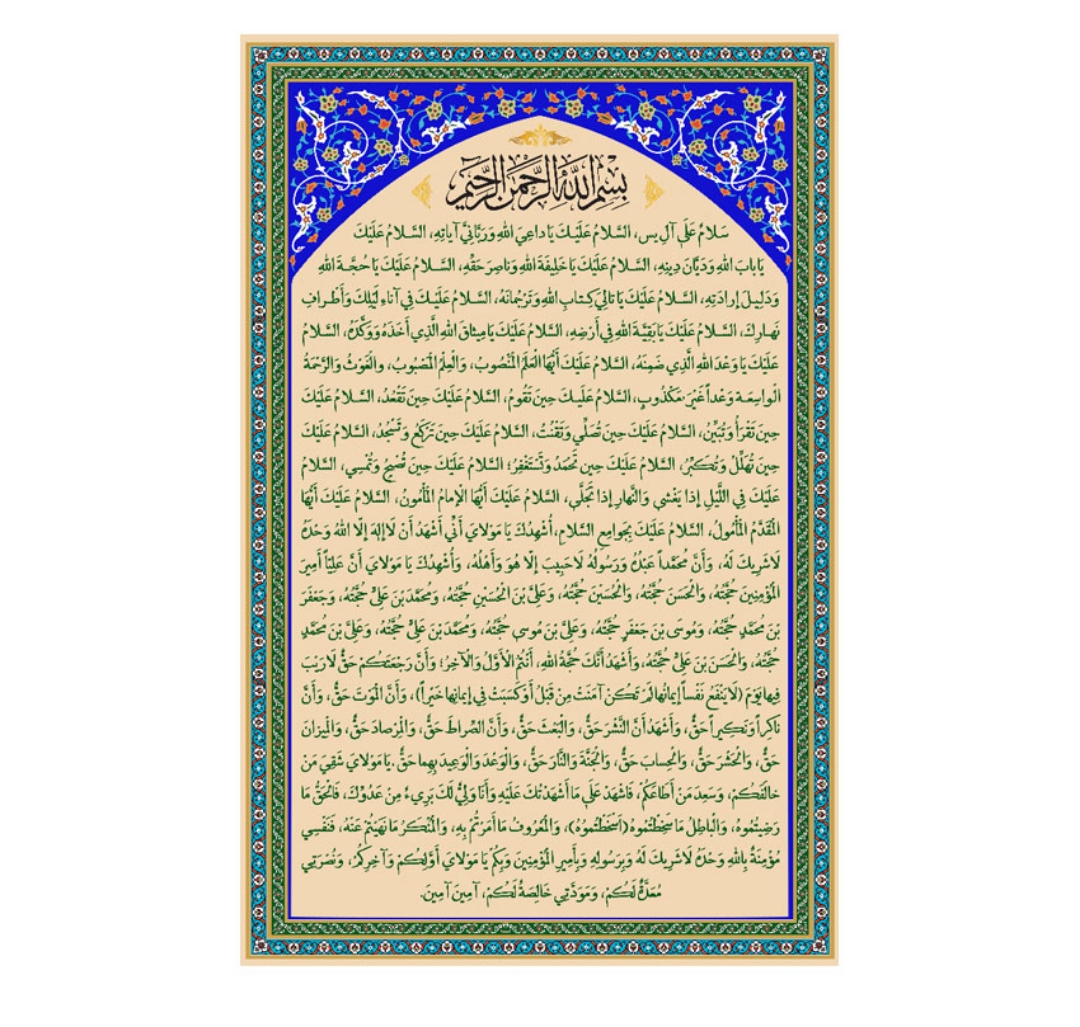 بِسْمِ اللَّهِ الرَّحْمَنِ الرَّحِيمِ
سَلامٌ عَلَى آلِ يس، السَّلامُ عَلَيْكَ يَا داعِيَ اللهِ وَرَبَّانِيَّ آيَاتِهِ، السَّلامُ عَلَيْكَ
يَا بابَ اللهِ وَدَيَّانَ دِينِهِ، السَّلامُ عَلَيْكَ يَا خَلِيفَةَ اللهِ وَناصِرَ حَقِّهِ، السَّلامُ عَلَيْكَ يَا حُجَّةَ اللهِ
وَدَلِيلَ إرادَتِهِ، السَّلامُ عَلَيْكَ يَا تالِيَ كِتابِ اللهِ وَتَرْجُمانَهُ، السَّلامُ عَلَيْكَ فِي آناءِ لَيْلِكَ وَأَطْرافِ
نَهارِكَ، السَّلامُ عَلَيْكَ يَا بَقِيَّةَ اللهِ فِي أَرْضِهِ، السَّلامُ عَلَيْكَ يَا مِيثاقَ اللهِ الَّذِي أَخَذَهُ وَوَكَّدَهُ، السَّلامُ
عَلَيْكَ يَا وَعْدَ اللهِ الَّذِي ضَمِنَهُ، السَّلامُ عَلَيْكَ أَيُّهَا الْعَلَمُ الْمَنْصُوبُ، وَالْعِلْمُ الْمَصْبُوبُ، والْغَوْثُ وَالرَّحْمَةُ
الْواسِعَة وَعْداً غَيْرَ مَكْذُوبٍ، السَّلامُ عَلَيكَ حِينَ تَقُومُ، السَّلامُ عَلَيْكَ حِينَ تَقْعُدُ، السَّلامُ عَلَيْكَ
حِينَ تَقْرَأُ وَتُبَيِّنُ، السَّلامُ عَلَيْكَ حِينَ تُصَلِّي وَتَقْنُتُ، السَّلامُ عَلَيْكَ حِينَ تَرْكَعُ وَتَسْجُدُ، السَّلامُ عَلَيْكَ
حِينَ تُهَلِّلُ وَتُكَبِّرُ، السَّلامُ عَلَيْكَ حِينَ تَحْمَدُ وَتَسْتَغْفِرُ؛ السَّلامُ عَلَيْكَ حِينَ تُصْبِحُ وَتُمْسِي، السَّلامُ
عَلَيْكَ فِي اللَّيْلِ إذا يَغْشى وَالنَّهارِ إذا تَجَلَّى، السَّلامُ عَلَيْكَ أَيُّهَا الْإمامُ الْمَأْمُونُ، السَّلامُ عَلَيْكَ أَيُّهَا
الْمُقَدَّمُ الْمَأْمُولُ، السَّلامُ عَلَيْكَ بِجَوامِعِ السَّلامِ، أُشْهِدُكَ يَا مَوْلايَ أَنِّي أَشْهَدُ أَنْ لَا إلهَ إلَّا اللهُ وَحْدَهُ
لَا شَرِيكَ لَهُ، وَأَنَّ مُحَمَّداً عَبْدُهُ وَرَسُولُهُ لَا حَبِيبَ إلَّا هُوَ وَأَهْلُهُ، وَأُشْهِدُكَ يَا مَوْلايَ أَنَّ عَلِيّاً أَمِيرَ
الْمُؤْمِنِينَ حُجَّتُهُ، وَالْحَسَنَ حُجَّتُهُ، وَالْحُسَيْنَ حُجَّتُهُ، وَعَلِيَّ بْنَ الْحُسَيْنِ حُجَّتُهُ، وَمُحَمَّدَ بْنَ عَلِيٍّ حُجَّتُهُ، وَجَعْفَرَ
بْنَ مُحَمَّدٍ حُجَّتُهُ، وَمُوسَى بْنَ جَعْفَرٍ حُجَّتُهُ، وَعَلِيَّ بْنَ مُوسى حُجَّتُهُ، وَمُحَمَّدَ بْنَ عَلِيٍّ حُجَّتُهُ، وَعَلِيَّ بْنَ مُحَمَّدٍ
حُجَّتُهُ، وَالْحَسَنَ بْنَ عَلِيٍّ حُجَّتُهُ، وَأَشْهَدُ أَنَّكَ حُجَّةُ اللهِ، أَنْتُمُ الْأَوَّلُ وَالْآخِرُ؛ وَأَنَّ رَجْعَتَكُمْ حَقٌّ لَا رَيْبَ
فِيها يَوْمَ (لَا يَنْفَعُ نَفْساً إيمانُها لَمْ تَكُنْ آمَنَتْ مِنْ قَبْلُ أَوْ كَسَبَتْ فِي إيمانِها خَيْراً)، وَأَنَّ الْمَوْتَ حَقٌّ، وَأَنَّ
نَاكِراً وَنَكِيراً حَقٌّ، وَأَشْهَدُ أَنَّ النَّشْرَ حَقٌّ، وَالْبَعْثَ حَقٌّ، وَأَنَّ الصِّراطَ حَقٌّ، وَالْمِرْصادَ حَقٌّ، وَالْمِيزانَ
حَقٌّ، وَالْحَشْرَ حَقٌّ، وَالْحِسابَ حَقٌّ، وَالْجَنَّةَ وَالنَّارَ حَقٌّ، وَالْوَعْدَ وَالْوَعِيدَ بِهِما حَقٌّ. يَا مَوْلايَ شَقِيَ مَنْ
خالَفَكُمْ، وَسَعِدَ مَنْ أَطاعَكُمْ، فَاشْهَدْ عَلَى مَا أَشْهَدْتُكَ عَلَيْهِ وَأَنَا وَلِيٌّ لَكَ بَرِيءٌ مِنْ عَدُوِّكَ، فَالْحَقُّ مَا
رَضِيتُمُوهُ، وَالْباطِلُ مَا سَخِطْتُمُوهُ (أَسْخَطْتُمُوهُ)، وَالْمَعْرُوفُ مَا أَمَرْتُمْ بِهِ، وَالْمُنْكَرُ مَا نَهَيْتُمْ عَنْهُ، فَنَفْسِي
مُؤْمِنَةٌ بِاللهِ وَحْدَهُ لَا شَرِيكَ لَهُ وَبِرَسُولِهِ وَبِأَمِيرِ الْمُؤْمِنِينَ وَبِكُمْ يَا مَوْلايَ أَوَّلِكُمْ وَآخِرِكُمْ، وَنُصْرَتِي
مُعَدَّةٌ لَكُمْ، وَمَوَدَّتِي خَالِصَةٌ لَكُمْ، آمِينَ آمِينَ.